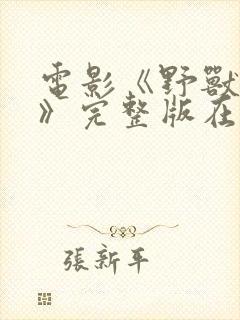 電影《野獸
》完整版在
張新平